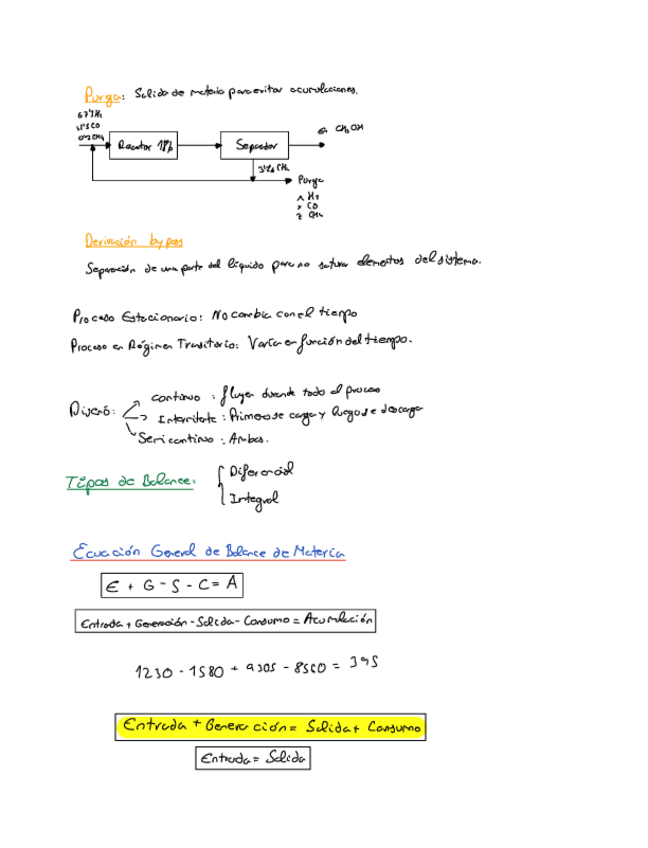 Purga: Salida de materia para evitar acumulaciones.
Reactor 18%
Separador
CH3OH
CH4
Purga
x H2
y CO
z CH4
Derivación bypas
Separación de una parte del líquido para no saturar elementos del sistema.
Proceso Estacionario: No cambia con el tiempo
Proceso en Régimen Transitorio: Varía en función del tiempo.
Diseño:
continuo : fluyen durante todo el proceso
Intermitente : Primero se carga y luego se descarga
Semicontinuo : Ambas.
Tipos de Balance:
Diferencial
Integral
Ecuación General de Balance de Materia
E + G - S - C = A
Entrada + Generación - Salida - Consumo = Acumulación
1230 - 1580 + 9305 - 8560 = 395
Entrada + Generación = Salida + Consumo
Entrada = Salida